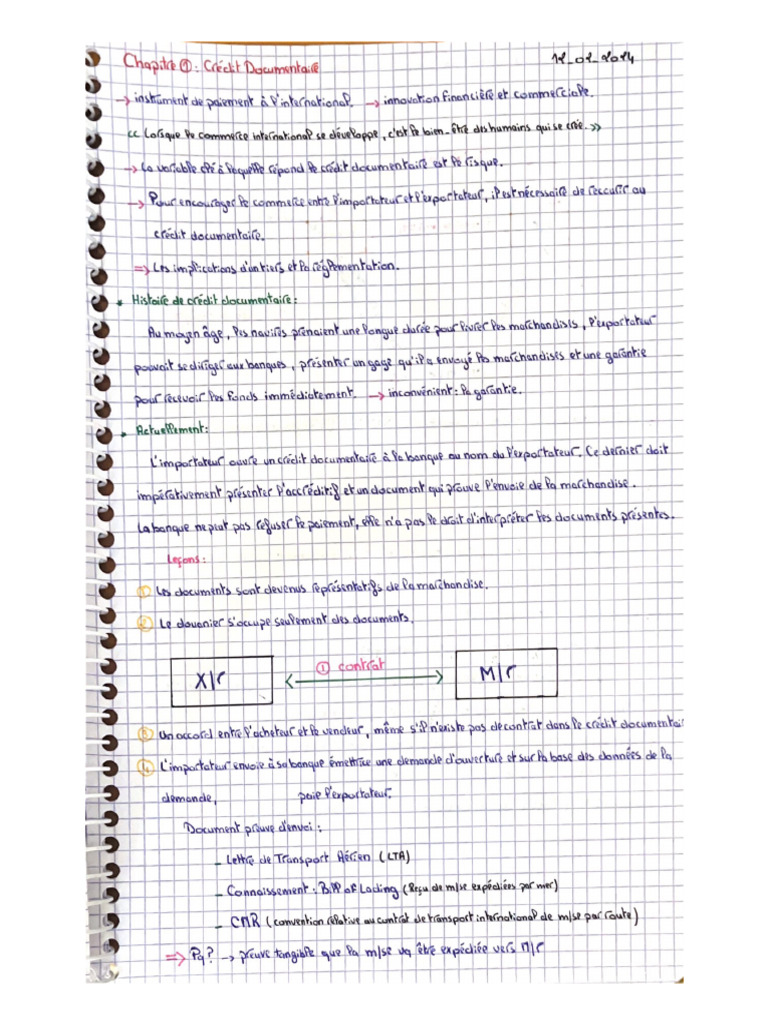 Chapitre ① : Crédit Documentaire
12_02_2024
→ instrument de paiement à l'international. → innovation financière et commerciale.
<< Lorsque le commerce international se développe, c'est le bien-être des humains qui se crée. >>
→ La variable clé à laquelle répond le crédit documentaire est le risque.
→ Pour encourager le commerce entre l'importateur et l'exportateur, il est nécessaire de reccurir au
crédit documentaire.
⇒ Les implications d'un tiers et la réglementation.
* Histoire de crédit documentaire :
Au moyen âge, les navires prenaient une longue durée pour livrer les marchandises, l'exportateur
pouvait se diriger aux banques, présenter un gage qu'il a envoyé les marchandises et une garantie
pour recevoir les fonds immédiatement. → inconvénient : la garantie.
* Actuellement :
L'importateur ouvre un crédit documentaire à la banque au nom du l'exportateur. Ce dernier doit
impérativement présenter l'accréditif et un document qui prouve l'envoie de la marchandise.
La banque ne peut pas refuser le paiement, elle n'a pas le droit d'interpréter les documents présentes.
Leçons :
① Les documents sont devenus représentatifs de la marchandise.
② Le douanier s'occupe seulement des documents.
X/r ① contrat M/r
③ Un accord entre l'acheteur et le vendeur, même s'il n'existe pas de contrat dans le crédit documentai
④ L'importateur envoie à sa banque émettrice une demande d'ouverture et sur la base des données de la
demande, paie l'exportateur.
Document preuve d'envoi :
- Lettre de Transport Aérien (LTA)
- Connaissement : Bill of Lading (Reçu de m/se expédiées par mer)
- CMR (convention relative au contrat de transport international de m/se par route)
⇒ Pq? → preuve tangible que la m/se va être expédiée vers M/r